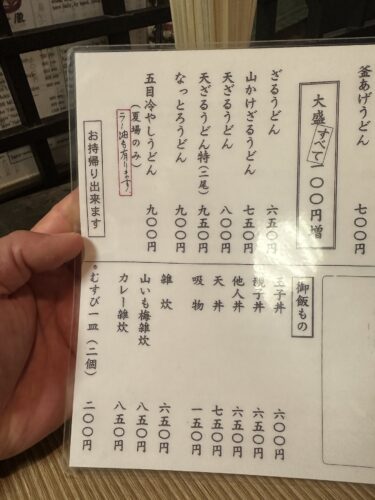 釜あげうどん 七〇〇円
大盛すべて一〇〇円増
ざるうどん 六五〇円
山かけざるうどん 七五〇円
天ざるうどん 八〇〇円
天ざるうどん特(二尾) 九五〇円
なっとろうどん 九〇〇円
五目冷やしうどん 九〇〇円
(夏場のみ)
ラー油も有ります!
お持帰り出来ます
御飯もの
玉子丼 六〇〇円
親子丼 六五〇円
他人丼 六五〇円
天丼 七五〇円
吸物 一五〇円
雑炊 六五〇円
山いも梅雑炊 八五〇円
カレー雑炊 八五〇円
•むすび一皿(二個) 二〇〇円